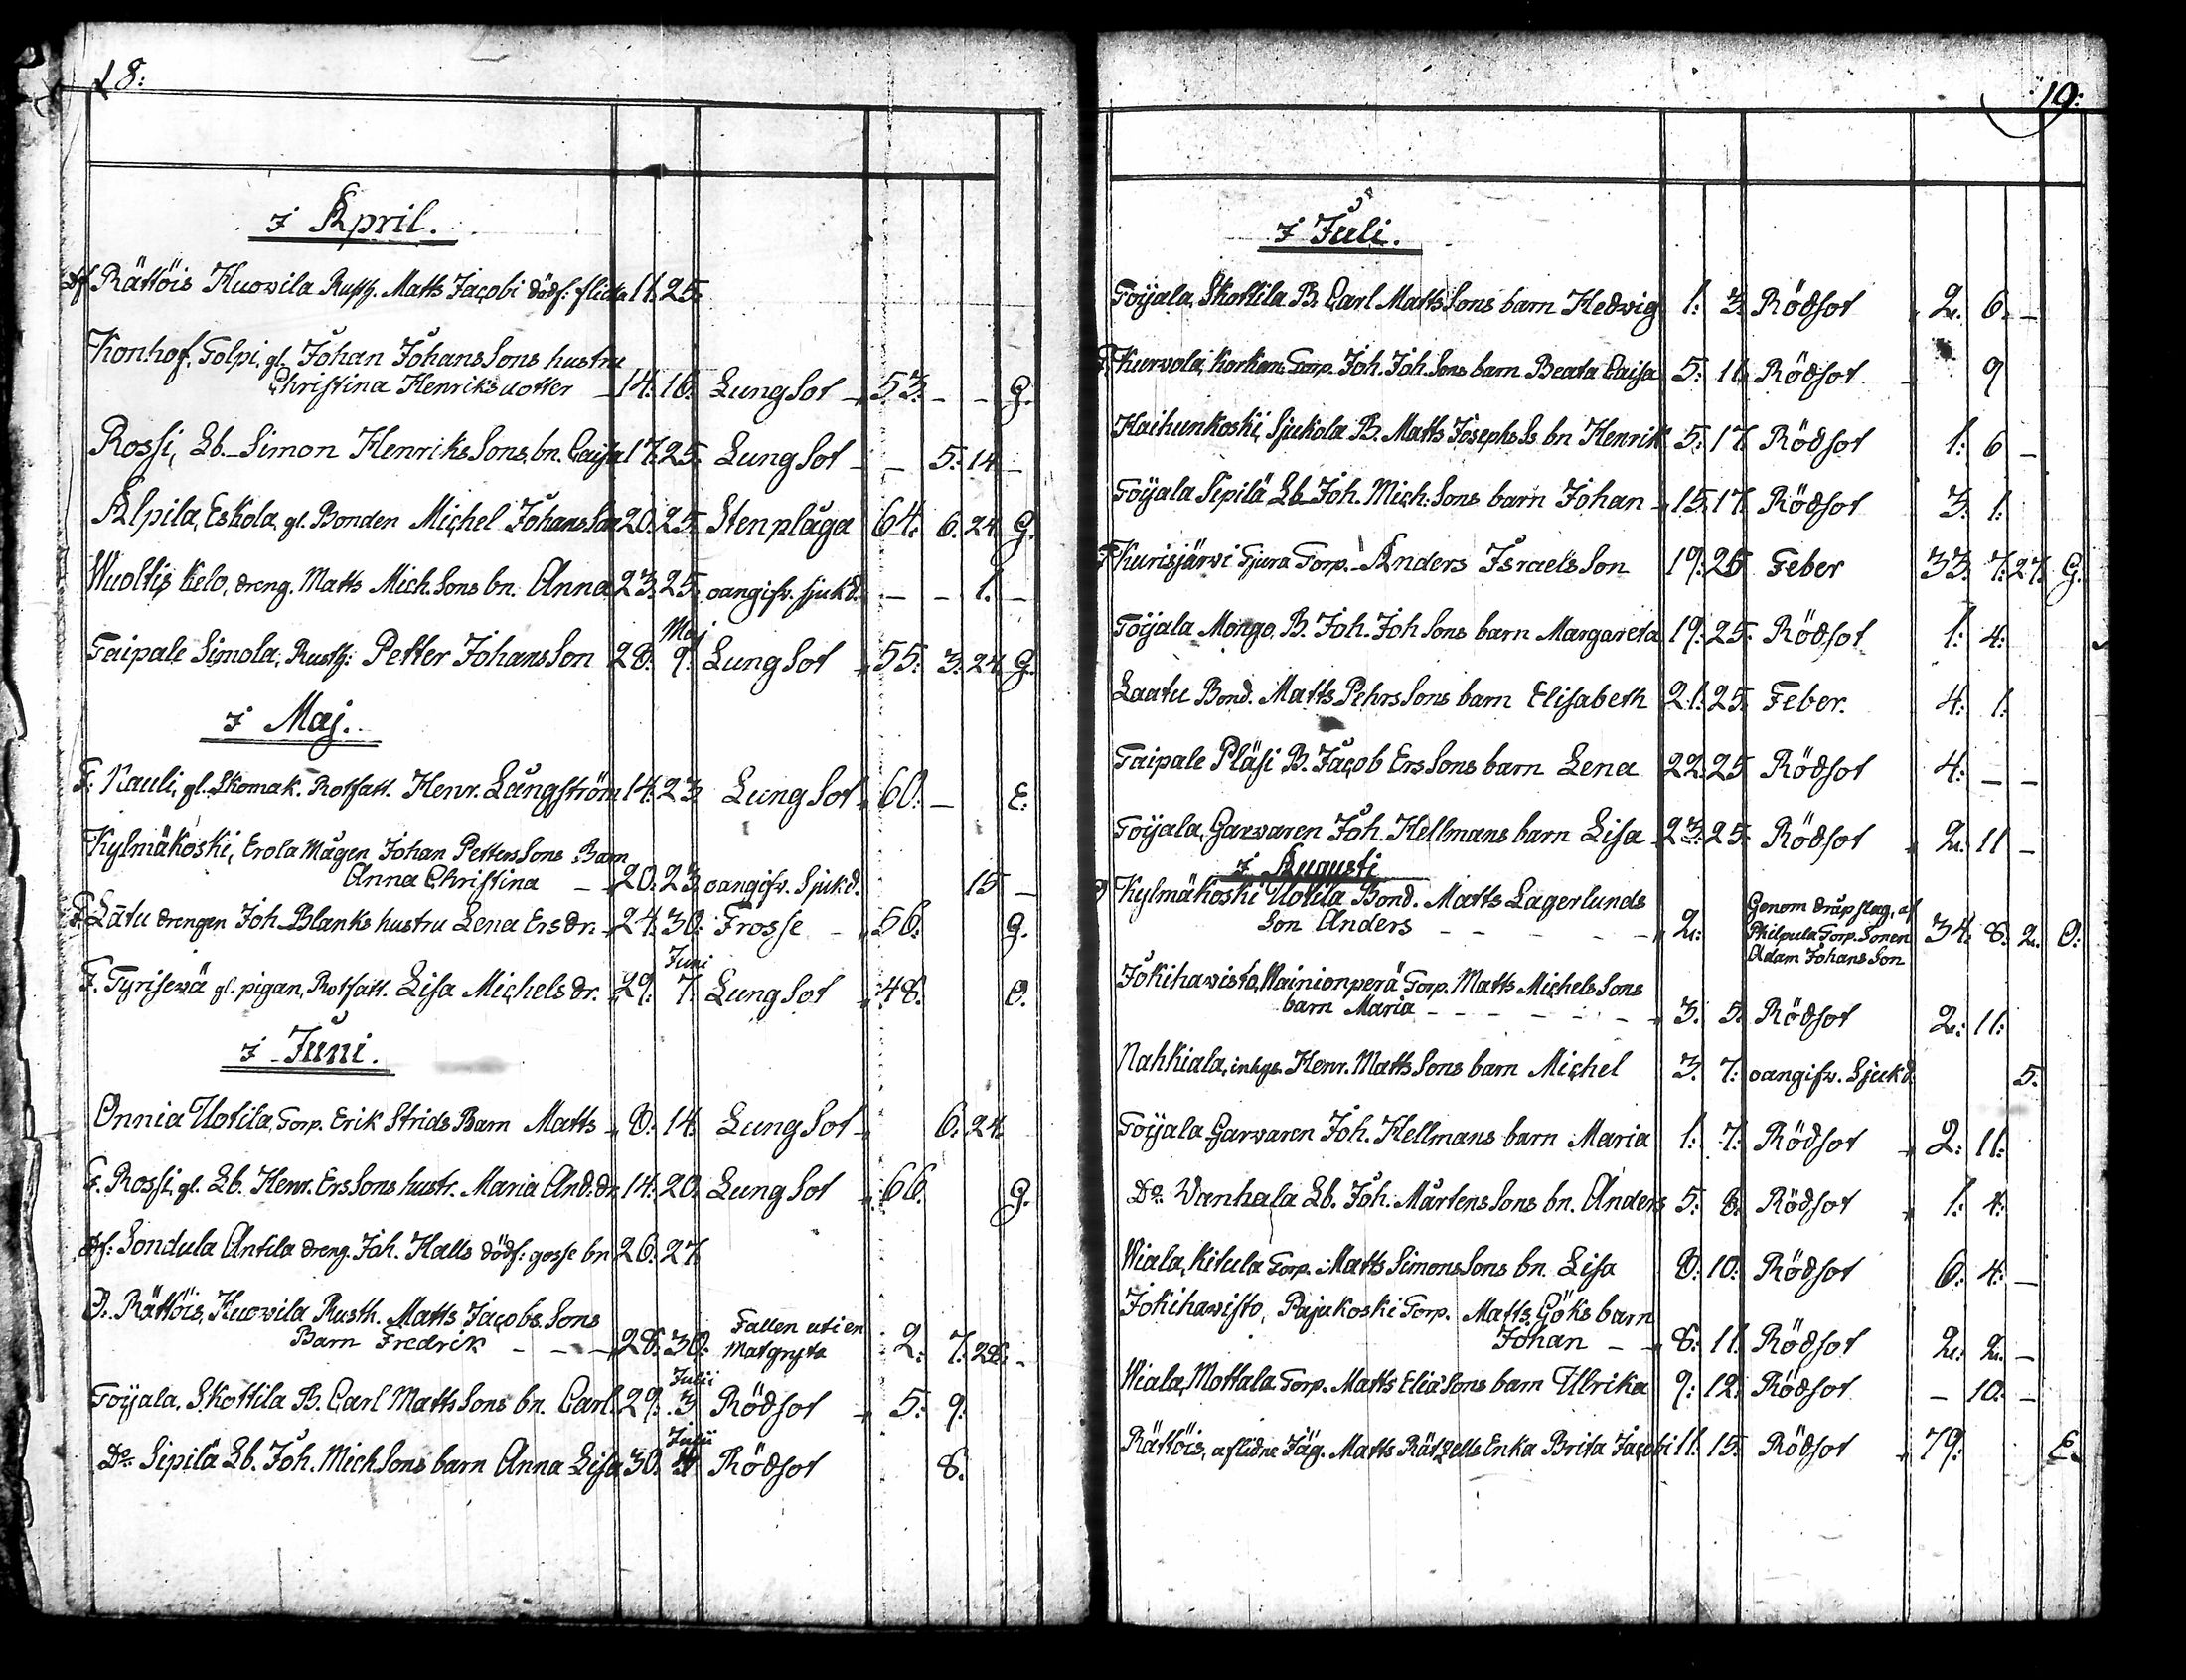 18:
i April.
Df Rättöis Huovila Rusth. Matts Jacobi dödf: flicka 11. 25:
Konhof, Tolpi, gl. Johan JohansSons hustru
Christina Henriksdotter 14: 16: LungSot 53: - - G.
Rossi, Lb. Simon HenriksSons bn. Caisa 17. 25. LungSot - 5: 14 -
Alpila, Eskola, gl. Bonden Michel JohansSon 20. 25. Stenplåga 64. 6. 24. G.
Wuoltis Kelo, dreng. Matts Mich.Sons bn. Anna 23. 25. oangifv. sjukd. - - 1. -
Maj
Taipale Simola, Rusth: Petter JohansSon 28. 9. LungSot 55: 3: 24. G.
i Maj.
F. Kauli, gl. Skomak. Rotfatt. Henr. Lungström 14: 23. LungSot 60: - E.
Kylmäkoski, Erola Mågen Johan PettersSons Barn
Anna Christina - 20. 23. oangifv. Sjukd. 15 -
F. Lātu drengen Joh. Blanks hustru Lena Ersdr. 24. 30. Frosse - 56: G.
Juni
F. Tyrisevä gl. pigan, Rotfatt. Lisa Michelsdr. 29. 7. LungSot 48: O.
i Juni.
Onnia Uotila, Torp. Erik Strids Barn Matts 8: 14. LungSot 6. 24.
F. Rossi, gl. Lb. Henr. ErsSons hustr. Maria And.dr. 14: 20. LungSot 66. G.
Df: Sondula Antila dreng. Joh. Halls dödf: gosse bn 26. 27.
O. Rättöis, Huovila Rusth. Matts JacobsSons
Barn Fredrik - - 28: 30: Fallen uti en
Matgryta 2. 7: 28: -
Julii
Toijala, Skottila B. Carl MattsSons bn. Carl. 29: 3 Rödsot 5: 9:
Julii
Do Sipilä Lb. Joh. MichSons barn Anna Lisa 30. Rödsot 8.
19:
i Juli.
Toijala, Skottila B. Carl MattsSons barn Hedvig 1: 3. Rödsot 2. 6. -
F. Kurvola, Korkem. Torp. Joh. Joh.Sons barn Beata Caisa 5: 11. Rödsot 9
Haihunkoski, Sjukola B. Matts JosephsSs bn Henrik 5: 17. Rödsot 1: 6 -
Toijala Sipilä Lb. Joh. Mich.Sons barn Johan 15. 17. Rödsot 3. 1:
F Kurisjärvi Tjura Torp. Anders IsraelsSon 19: 26 Feber 33. 7: 27: G.
Toijala Mongo. B. Joh. JohSons barn Margareta 19: 25: Rödsot 1: 4:
Laatu Bond. Matts PehrsSons barn Elisabeth 21. 25. Feber. 4: 1:
Taipale Pläsi B. Jacob ErsSons barn Lena 22. 25 Rödsot 4: - -
Toijala, Garvaren Joh. Hellmans barn Lisa 23: 25: Rödsot 2. 11 -
i Augusti
O Kylmäkoski Uotila Bond. Matts Lagerlunds
Son Anders - - - 2: Genom dråpslag, af
Philpula Torp. Sonen
Adam JohansSon 34. 8. 2. O.
Jokihavisto, Wainionperä Torp. Matts MichelsSons
barn Maria - - - 3. 5: Rödsot 2.: 11:
Nahkiala, inhys. Henr. MattsSons barn Michel 3. 7: oangifv. Sjukd. 5.
Toijala Garvaren Joh. Hellmans barn Maria 1: 7: Rödsot 2: 11:
Do Vanhala Lb. Joh. MårtensSons bn. Anders 5: 8: Rödsot 1: 4:
Wiala, Kitula Torp. Matts SimonsSons bn. Lisa 8: 10: Rödsot 6: 4: -
Jokihavisto, Pajukoski Torp. Matts Göks barn
Johan - - 8: 11. Rödsot 2. 2. -
Wiala, Mottala Torp. Matts EliäSons barn Ulrika 9: 12. Rödsot - 10. -
Rättöis, aflidne Jäg. Matts Rätzells Enka Brita Jacobi 11. 15. Rödsot 79: E.